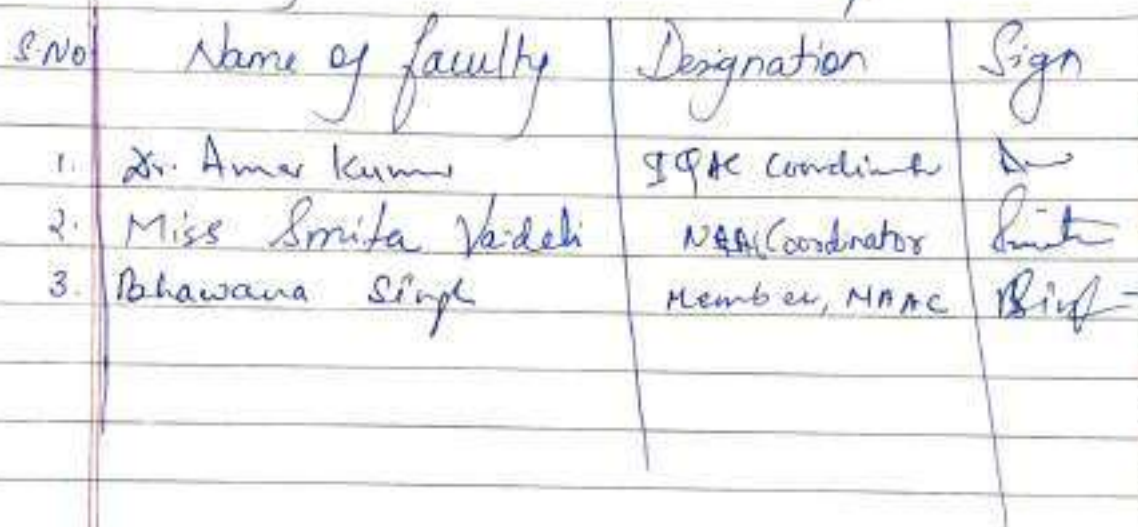 S.No Name of faculty Designation Sign
1. Dr. Amar Kumar IQAC Coordinator
2. Miss Smita Vaidehi NAAC Coordinator Smita
3. Bhawana Singh Member, NAAC BSingh